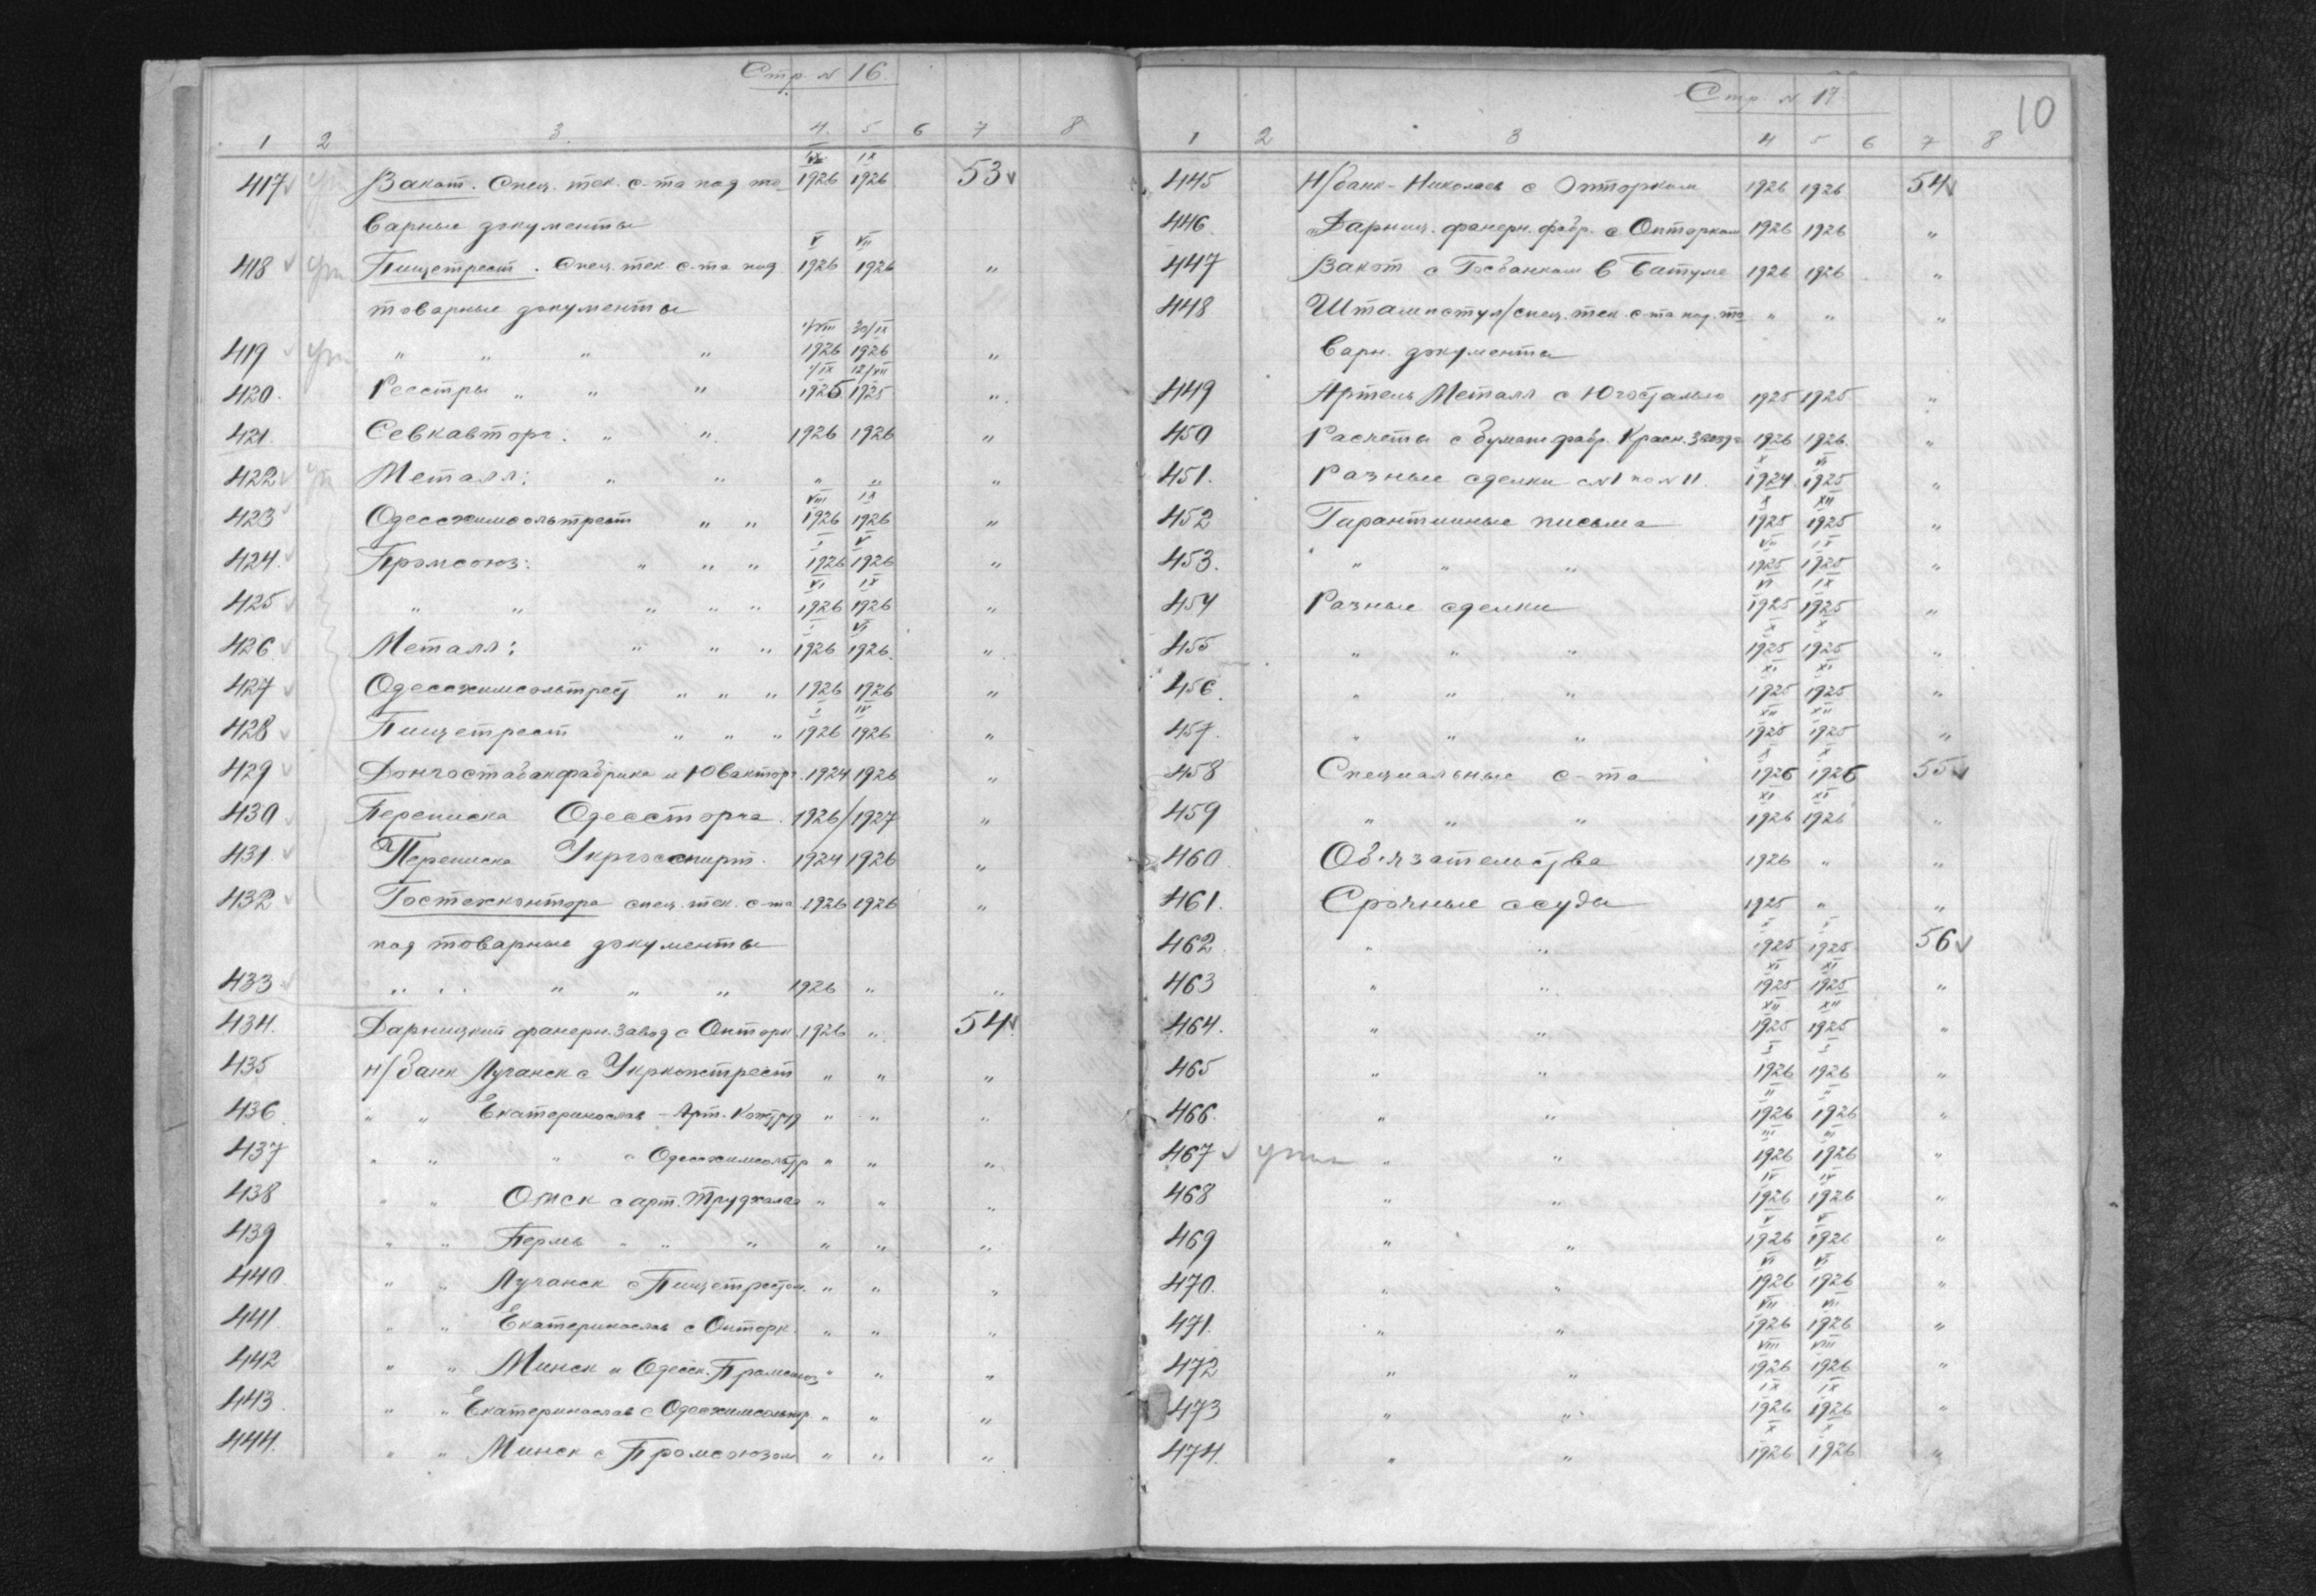 Стр. N 16.
1 2 3 4 5 6 7 8
IX IX
417 Закат. Спец. тек. с-та под то- 1926 1926 53
варные документы
V VII
418 Пищетрест. Спец. тек. с-та под 1926 1926 "
товарные документы
30/IX
419 " " " " 1926 1926 "
1/IX 12/XII
420. Реестры " " " 1925 1925 "
421. Севкавторг. " " 1926 1926 "
422 Металл: " " " " "
VIII IX
423 Одессхимсольтрест " " 1926 1926 "
I V
424. Промсоюз: " " " 1926 1926 "
VI IX
425 " " " " " 1926 1926 "
I VI
426 Металл: " " " 1926 1926. "
427 Одессхимсольтрест " " " 1926 1926 "
I IV
428 Пищетрест " " " 1926 1926 "
429 Донгостабакфабрика и Юваkторг. 1924 1926 "
430 Переписка Одессторга. 1926/1927 "
431. Переписка Укргосспирт. 1924 1926 "
432 Гостехконтора спец. тек. с-та 1926 1926 "
под товарные документы
433 " " " " " 1926 " "
434. Дарницкий фанерн. завод с Окторк. 1926 " 54.
435 Н/банк Луганск с Укркожтрест " " "
436. " " Екатеринослав - Арт. Кожтруд " " "
437 " " " с Одесхимсольтр " " "
438 " " Омск с арт. Труджалса " " "
439 " " Пермь " " " " " "
440. " " Луганск с Пищетрестом. " " "
441 " " Екатеринослав с Окторк. " " "
442 " " Минск " Одесск. Промсоюз " " "
443. " " Екатеринослав с Одесхимсольтр. " " "
444. " " Минск с Промсоюзом " " "
Стр. N 17.
10
1 2 3 4 5 6 7 8
445 Н/банк - Николаев с Окторком 1926 1926 54
446. Дарниц. фанерн. фабр. с Окторком 1926 1926 "
447 Закот с Госбанком в Батуме 1926 1926 "
448 Штампстул/спец. тек. с-та под. то " " "
варн. документы
449 Артель Металл с Югосталью 1925 1925 "
450 Расчеты с бумаж. фабр. Красн. Звезда 1926 1926. "
X VI
451. Разные сделки с N1 по N 11. 1924. 1925 "
X XII
452 Гарантийные письма 1925 1925 "
VII IX
453. " " " 1925 1925 "
VI IX
454 Разные сделки 1925 1925 "
X X
455 " " " 1925 1925 "
XI XI
456. " " " 1925 1925 "
XII XII
457. " " " 1925 1925 "
X X
458 Специальные с-та 1926 1926 55
XI XI
459 " " " 1926 1926 "
460. Обязательства 1926 " "
461. Срочные ссуды 1925 " "
X X
462 " " 1925 1925 56
XI XI
463 " " 1925 1925 "
XII XII
464. " " 1925 1925 "
I I
465 " " 1926 1926 "
II II
466. " " 1926 1926 "
III III
467 " " 1926 1926 "
IV IV
468 " " 1926 1926 "
V V
469 " " 1926 1926 "
VI VI
470. " " 1926 1926 "
VII VII
471. " " 1926 1926 "
VIII VIII
472 " " 1926 1926 "
IX IX
473 " " 1926 1926 "
X X
474. " " 1926 1926 "